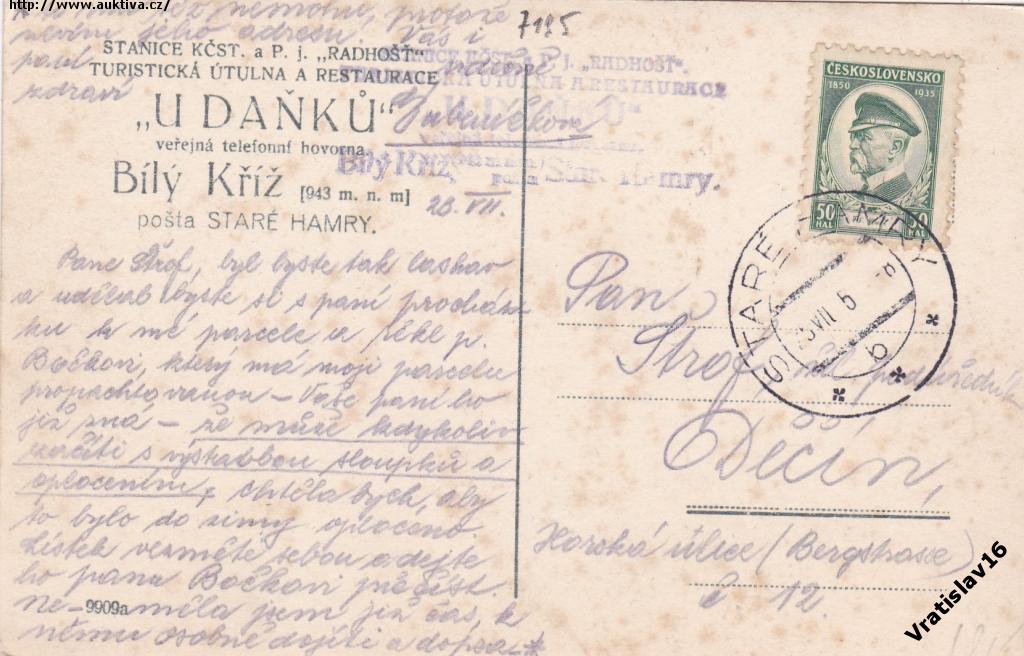 http://www.auktiva.cz/
7185
nemohu, protože
nevím jeho adresu. Vás i
paní
zdraví
STANICE KČST. a P. j. „RADHOŠŤ"
TURISTICKÁ ÚTULNA A RESTAURACE
„U DAŇKŮ"
veřejná telefonní hovorna
Bílý Kříž [943 m. n. m]
pošta STARÉ HAMRY.
STANICE KČST. a P. j. „RADHOŠŤ".
TURISTICKÁ ÚTULNA A RESTAURACE
„U DAŇKŮ"
Bílý Kříž, pošta Staré Hamry.
28. VII.
Pane Štrof, byl byste tak laskav
a udělal byste si s paní procház-
ku k mé parcele a řekl p.
Bočkovi, který má moji parcelu
propachtovanou – Vaše paní ho
již zná – že může kdykoliv
začíti s výstavbou sloupků a
oplocením, chtěla bych, aby
to bylo do zimy oploceno.
Lístek vezměte sebou a dejte
ho panu Bočkovi přečíst.
ne- měla jsem již čas, k
němu osobně dojíti a dopsa-*
9909a
ČESKOSLOVENSKO
1850 1935
50 HAL 50 HAL
STARÉ HAMRY
VII 5
b
Pan
Štrof,
Děčín,
Horská ulice (Bergstrasse)
č 12.
Vratislav16